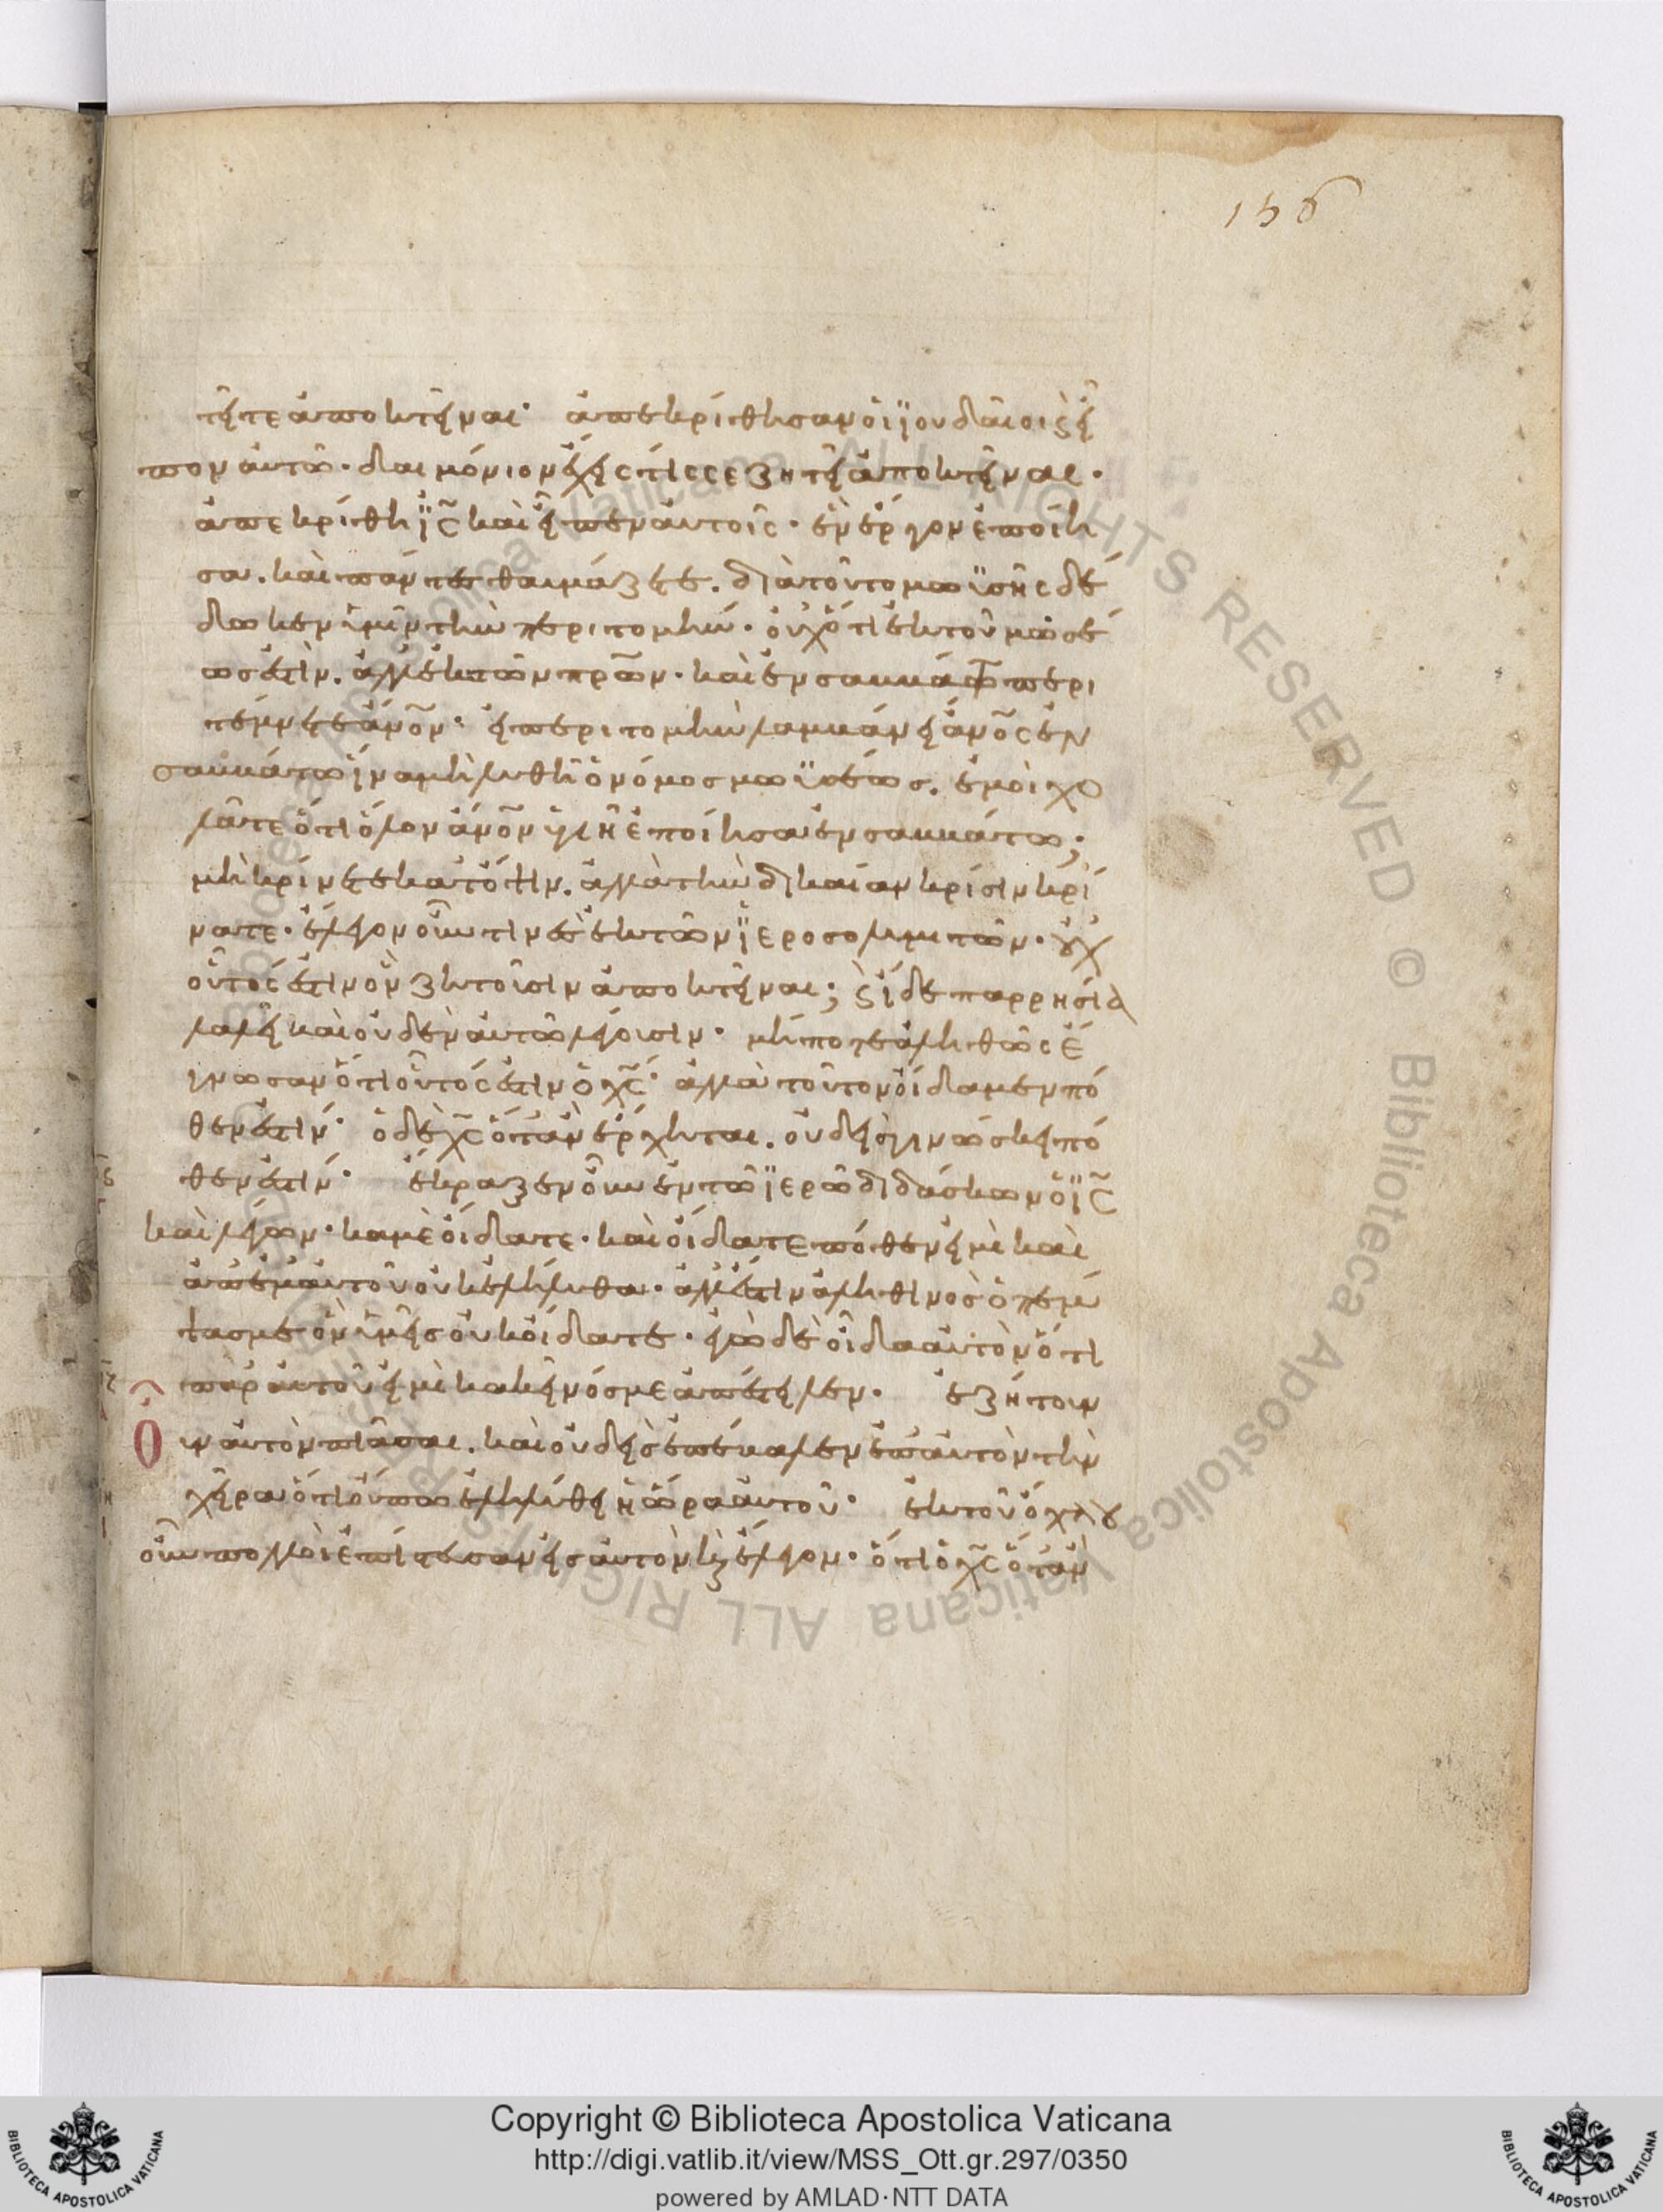 156
τεῖτε ἀποκτεῖναι· ἀπεκρίθησαν οἱ ϊουδαῖοι ϗ εἶ
πον αὐτῶ· δαιμόνιον ἔχεις τίς σε ζητεῖ ἀποκτεῖναι·
ἀπεκρίθη ϊ̅ς̅ καὶ εἶπεν αὐτοῖς· ἓν ἔργον ἐποίη
σα. καὶ πάντες θαυμάζετε. διὰ τοῦτο μωϋσῆς δέ
δωκεν ὑμῖν τὴν περιτομήν· οὐχ ὅτι ἐκ τοῦ μωσέ
ως ἐστὶν. ἀλλ' ἐκ τῶν π̅ρ̅ω̅ν· καὶ ἐν σαββάτω περι
τέμνετε ἄν̅ο̅ν· εἰ περιτομὴν λαμβάνει ἄν̅ο̅ς ἐν
σαββάτω ἵνα μὴ λυθῆ ὁ νόμος μωϋσέως. ἐμοὶ χο
λᾶτε ὅτι ὅλον ἄν̅ο̅ν ὑγιῆ ἐποίησα ἐν σαββάτω;
μὴ κρίνετε κατ' ὄψιν. ἀλλὰ τὴν δικαίαν κρίσιν κρί
νατε· ἔλεγον οὖν τινὲς ἐκ τῶν ϊεροσολυμιτῶν· οὐχ
οὗτός ἐστιν ὃν ζητοῦσιν ἀποκτεῖναι; ϗ ἴδε παρρησία
λαλεῖ καὶ οὐδὲν αὐτῶ λέγουσιν· μήποτε ἀληθῶς ἔ
γνωσαν ὅτι οὗτός ἐστιν ὁ χ̅ς̅· ἀλλὰ τοῦτον οἴδαμεν πό
θεν ἐστίν· ὁ δὲ χ̅ς̅ ὅταν ἔρχηται. οὐδεὶς γινώσκει πό
θεν ἐστίν· ἔκραζεν οὖν ἐν τῶ ϊερῶ διδάσκων ὁ ϊ̅ς̅
καὶ λέγων· κἀμὲ οἴδατε· καὶ οἴδατε πόθεν εἰμὶ καὶ
ἀπ' ἐμαυτοῦ οὐκ ἐλήλυθα· ἀλλ' ἔστιν ἀληθινὸς ὁ πέμ
ψας με ὃν ὑμεῖς οὐκ οἴδατε· ἐγὼ δὲ οἶδα αὐτὸν ὅτι
παρ' αὐτοῦ εἰμὶ κἀκεῖνός με ἀπέστειλεν. ἐζήτουν
οὖν αὐτὸν πιάσαι. καὶ οὐδεὶς ἐπέβαλεν ἐπ' αὐτὸν τὴν
χεῖρα ὅτι οὔπω ἐληλύθει ἡ ὥρα αὐτοῦ· ἐκ τοῦ ὄχλου
οὖν πολλοὶ ἐπίστευσαν εἰς αὐτὸν ϗ ἔλεγον· ὅτι ὁ χ̅ς̅ ὅταν
Biblioteca Apostolica Vaticana ALL RIGHTS RESERVED © Biblioteca Apostolica Vaticana ALL RIGHTS RESERVED
Copyright © Biblioteca Apostolica Vaticana
http://digi.vatlib.it/view/MSS_Ott.gr.297/0350
powered by AMLAD·NTT DATA
BIBLIOTECA APOSTOLICA VATICANA
BIBLIOTECA APOSTOLICA VATICANA